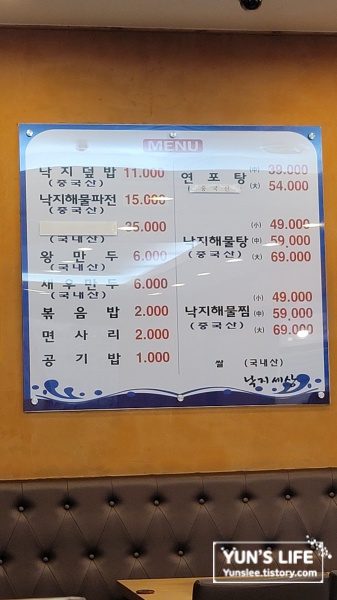 MENU
낙지덮밥 11.000
(중국산)
낙지해물파전 15.000
(중국산)
35.000
(국내산)
왕만두 6.000
(국내산)
새우만두 6.000
(국내산)
볶음밥 2.000
면사리 2.000
공기밥 1.000
연포탕 (中) 39.000
(중국산) (大) 54.000
(小) 49.000
낙지해물탕 (中) 59,000
(중국산) (大) 69.000
(小) 49.000
낙지해물찜 (中) 59,000
(중국산) (大) 69.000
쌀 (국내산)
낙지세상
YUN'S LIFE
Yunslee.tistory.com